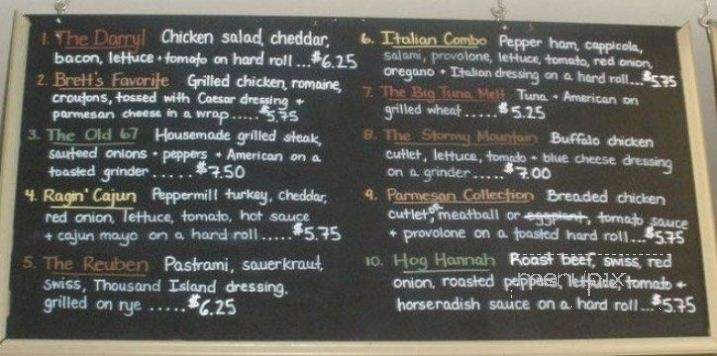 1. The Darryl Chicken salad, cheddar,
bacon, lettuce + tomato on hard roll ... $6.25
2. Brett's Favorite Grilled chicken, romaine,
croutons, tossed with Caesar dressing +
parmesan cheese in a wrap ..... $5.75
3. The Old 67 Housemade grilled steak,
sauteed onions + peppers + American on a
toasted grinder ...... $7.50
4. Ragin' Cajun Peppermill turkey, cheddar,
red onion, lettuce, tomato, hot sauce
+ cajun mayo on a hard roll ..... $5.75
5. The Reuben Pastrami, sauerkraut,
swiss, Thousand Island dressing,
grilled on rye ..... $6.25
6. Italian Combo Pepper ham, cappicola,
salami, provolone, lettuce, tomato, red onion,
oregano + Italian dressing on a hard roll... $5.75
7. The Big Tuna Melt Tuna + American on
grilled wheat...... $5.25
8. The Stormy Mountain Buffalo chicken
cutlet, lettuce, tomato + blue cheese dressing
on a grinder ..... $7.00
9. Parmesan Collection Breaded chicken
cutlet, or meatball or eggplant, tomato sauce
+ provolone on a toasted hard roll... $5.75
10. Hog Hannah Roast beef, swiss, red
onion, roasted peppers, lettuce, tomato +
horseradish sauce on a hard roll ... $5.75
menupix